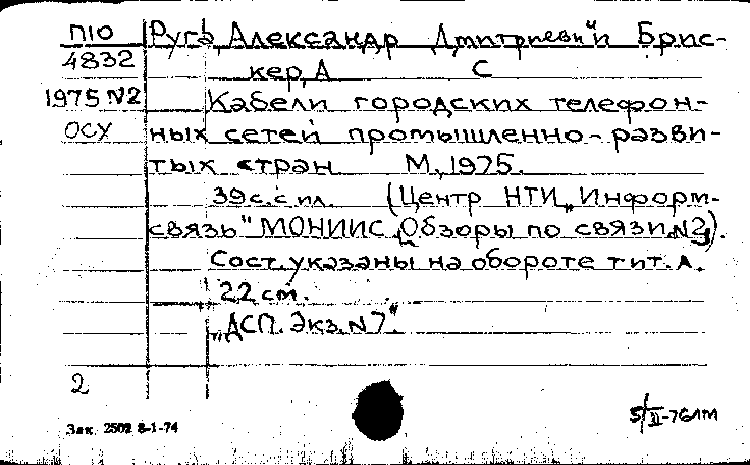 П10 Руга, Александр Дмитриевич и Брис-
4832 кер, А С
1975 N2 Кабели городских телефон-
ОСУ ных сетей промышленно-разви-
тых стран М., 1975.
39 с. с ил. (Центр НТИ „Информ-
связь" МОНИИС. Обзоры по связи N2).
Сост. указаны на обороте тит. л.
22 см.
„ДСП. Экз. N7".
2
Зак. 2502 8-1-74
5/II-76 лм